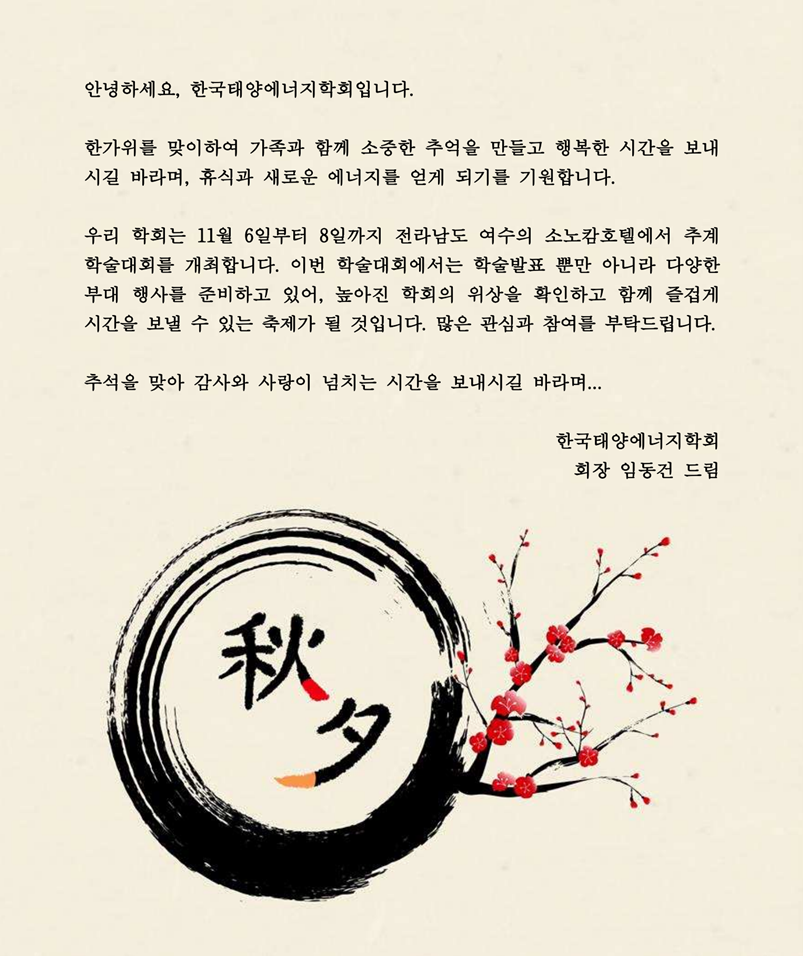 안녕하세요, 한국태양에너지학회입니다.
한가위를 맞이하여 가족과 함께 소중한 추억을 만들고 행복한 시간을 보내
시길 바라며, 휴식과 새로운 에너지를 얻게 되기를 기원합니다.
우리 학회는 11월 6일부터 8일까지 전라남도 여수의 소노캄호텔에서 추계
학술대회를 개최합니다. 이번 학술대회에서는 학술발표 뿐만 아니라 다양한
부대 행사를 준비하고 있어, 높아진 학회의 위상을 확인하고 함께 즐겁게
시간을 보낼 수 있는 축제가 될 것입니다. 많은 관심과 참여를 부탁드립니다.
추석을 맞아 감사와 사랑이 넘치는 시간을 보내시길 바라며...
한국태양에너지학회
회장 임동건 드림
秋
夕